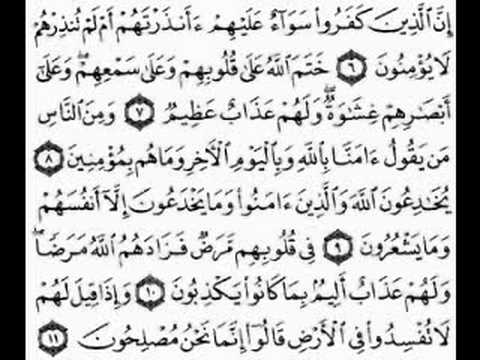 إِنَّ ٱلَّذِينَ كَفَرُوا۟ سَوَآءٌ عَلَيْهِمْ ءَأَنذَرْتَهُمْ أَمْ لَمْ تُنذِرْهُمْ
لَا يُؤْمِنُونَ ٦ خَتَمَ ٱللَّهُ عَلَىٰ قُلُوبِهِمْ وَعَلَىٰ سَمْعِهِمْ ۖ وَعَلَىٰٓ
أَبْصَـٰرِهِمْ غِشَـٰوَةٌ ۖ وَلَهُمْ عَذَابٌ عَظِيمٌ ٧ وَمِنَ ٱلنَّاسِ
مَن يَقُولُ ءَامَنَّا بِٱللَّهِ وَبِٱلْيَوْمِ ٱلْـَٔاخِرِ وَمَا هُم بِمُؤْمِنِينَ ٨
يُخَـٰدِعُونَ ٱللَّهَ وَٱلَّذِينَ ءَامَنُوا۟ وَمَا يَخْدَعُونَ إِلَّآ أَنفُسَهُمْ
وَمَا يَشْعُرُونَ ٩ فِى قُلُوبِهِم مَّرَضٌ فَزَادَهُمُ ٱللَّهُ مَرَضًا ۖ
وَلَهُمْ عَذَابٌ أَلِيمٌۢ بِمَا كَانُوا۟ يَكْذِبُونَ ١٠ وَإِذَا قِيلَ لَهُمْ
لَا تُفْسِدُوا۟ فِى ٱلْأَرْضِ قَالُوٓا۟ إِنَّمَا نَحْنُ مُصْلِحُونَ ١١